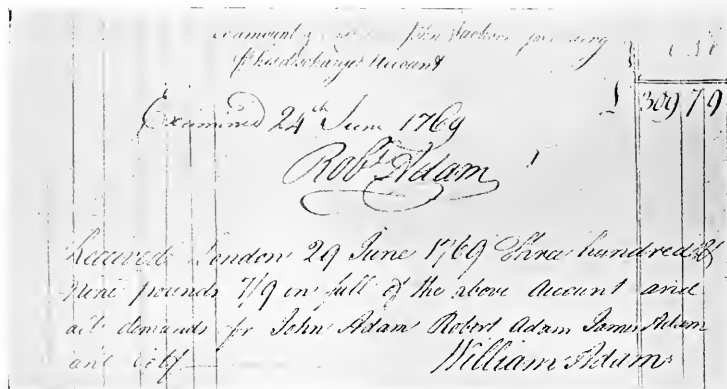 amount John Jackson
of his discharged Account
£ 309 7 9
Examined 24th June 1769
Robt Adam
Received London 29 June 1769 Three hundred &
Nine pounds 7/9 in full of the above Account and
all demands for John Adam Robert Adam James Adam
and self
William Adam